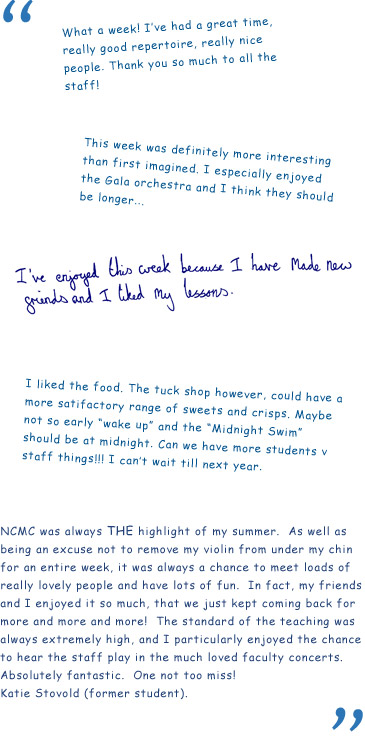 “
What a week! I've had a great time,
really good repertoire, really nice
people. Thank you so much to all the
staff!
This week was definitely more interesting
than first imagined. I especially enjoyed
the Gala orchestra and I think they should
be longer...
I've enjoyed this week because I have made new
friends and I liked my lessons.
I liked the food. The tuck shop however, could have a
more satifactory range of sweets and crisps. Maybe
not so early “wake up” and the “Midnight Swim”
should be at midnight. Can we have more students v
staff things!!! I can't wait till next year.
NCMC was always THE highlight of my summer.  As well as
being an excuse not to remove my violin from under my chin
for an entire week, it was always a chance to meet loads of
really lovely people and have lots of fun.  In fact, my friends
and I enjoyed it so much, that we just kept coming back for
more and more and more!  The standard of the teaching was
always extremely high, and I particularly enjoyed the chance
to hear the staff play in the much loved faculty concerts.
Absolutely fantastic.  One not too miss!
Katie Stovold (former student).
”